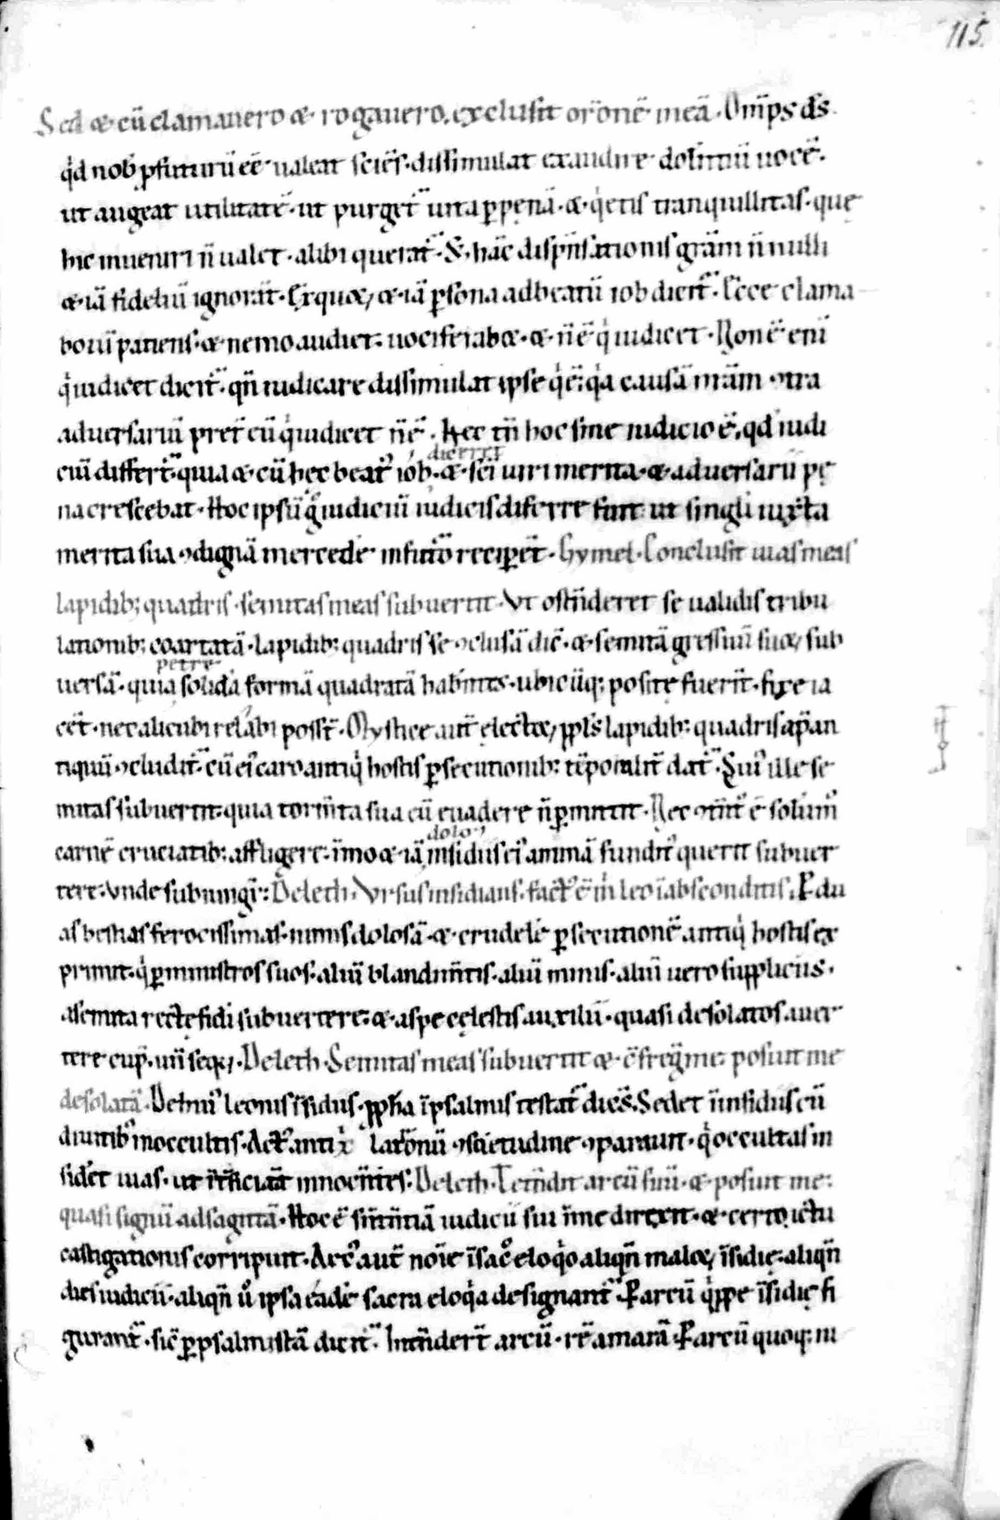 115.
Sed & cū clamauero & rogauero. exclusit or̄onē meā. Om̄ps ds̄
qd́ nob ꝓfuturū eē ualeat sciēs. dissimulat exaudire dolentiū uocē.
ut augeat utilitatē. ut purget̄ uita p penā. & qetis tranquillitas. quę
hic inueniri n̄ ualet. alibi querat̄. S; hāc dispn̄sationis grām n̄nulli
& iā fideliū ignorāt. Ex quoꝝ & iā ꝑsona ad beatū iob dicit̄. Ecce clama
bo uim patiens. & nemo audiet. uociferabor & n̄ ē q́ iudicet. Non ē eni
q́ iudicet dicit̄. qn̄ iudicare dissimulat ipse q́ ē. qa causā nrām ꝯtra
aduersariū pret̄ eū q́ iudicet n̄ ē. Nec tn̄ hoc sine iudicio ē. qd iudi
ciū differt̄. quia & cū hęc beat iob diceret & sc̄i uiri merita & aduersarii pę
na crescebat. Hoc ipsū q iudiciū iudicis diferre fuit ut singli iuxta
merita sua ꝯdignā mercedē in futo reciperēt. Gymel. Conclusit uias meas
lapidib; quadris. semitas meas subuertit. Vt ostn̄deret se ualidis tribu
lationib; coartatā. lapidib; quadris se ꝯclusā dic̄. & semitā gressuū suoꝝ sub
uersā. quia solidā petrę formā quadratā habn̄tes. ubicūq; posite fuerīt. fixe ia
cēt. nec alicubi relabi posst̄. Mystice aut̄ electoꝝ ppls̄ lapidib; quadris ap̄ an
tiquū ꝯcludit̄. cū ei caro antiq́ hostis ꝑsecutionib; tēporalit̄ dat̄. Qui ille se
mitas subuertit. quia torm̄ta sua eū euadere n̄ ꝑmittit. Nec ꝯtn̄t ē solūm
carnē cruciatib; affligere. īmo & iā insidiis dolo ei animā fundit querit subuer
tere. Vnde subiungit̄. Deleth. Vrsus insidians. fact ē m̄ leo ī absconditis. P du
as bestias ferocissimas. nimis dolosā & crudelē ꝑsecutionē antiq́ hostis ex
primit. q́ ꝑ ministros suos. aliū blandim̄tis. aliū minis. aliū uero suppliciis.
a semita rectę fidei subuertere. & a spe cęlestis auxilii. quasi desolatos auer
tere cup̄. un̄ seqꝛ. Deleth. Semitas meas subuertit & c̄fregit me. posuit me
desolatā. De hui leonis īsidiis. ꝓpħa ī psalmis testat̄ dicēs. Sedet ī insidiis cū
diuitib in occultis. Act antix̄ latronū ꝯsuetudine ꝯparauit. q́ occultas in
sidet uias. ut int̄ficiat̄ innocn̄tes. Deleth. Tetn̄dit arcū suū. & posuit me.
quasi signū ad sagittā. Hoc ē sn̄tn̄tiā iudicii sui in me direxit. & certo ictu
castigationis corripuit. Arc aut̄ noīe ī sac̄ eloqo aliqn̄ maloꝝ īsidię. aliqn̄
dies iudicii. aliqn̄ ū ipsa eadē sacra eloqa designant̄. P arcū qppe īsidię fi
gurant̄. sic̄ p psalmistā dicit̄. Intn̄dert̄ arcū. rē amarā. P arcū quoq; iu